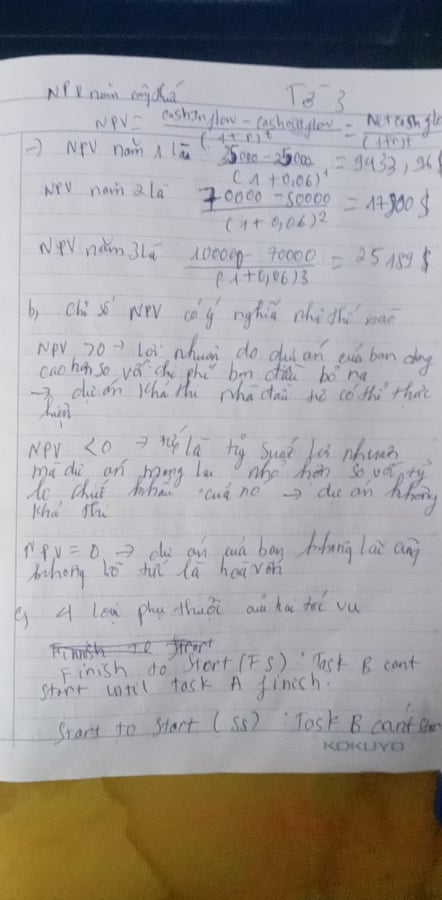 NPV năm công thức
Tờ 3
NPV = cash inflow - cash outflow / (1+r)^t = Net cash flow / (1+r)^t
-) NPV năm 1 là 35000 - 25000 / (1+0,06)^1 = 9433,96 $
NPV năm 2 là 70000 - 50000 / (1+0,06)^2 = 17800 $
NPV năm 3 là 100000 - 70000 / (1+0,06)3 = 25189 $
b, chỉ số NPV có ý nghĩa như thế nào
NPV >0 → Lợi nhuận do dự án của bạn
cao hơn so với chi phí ban đầu bỏ ra
→ dự án khả thi nhà đầu tư có thể thực
hiện
NPV <0 → tức là tỷ suất lợi nhuận
mà dự án mang lại nhỏ hơn so với tỷ
lệ chiết khấu của nó → dự án không
khả thi
NPV = 0 → dự án của bạn không lãi cũng
không lỗ tức là hoà vốn
c, 4 loại phụ thuộc của hai tác vụ
Finish to Start
Finish do Start (FS) : Task B cant
Start until task A finish.
Start to Start (SS) : Task B cant
KOKUYO